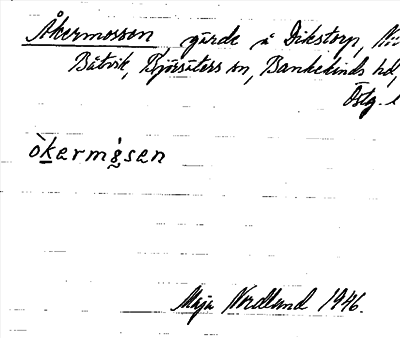 Åkermossen, gärde å Dikstorp,
Båtvik, Bjørsäters sn, Bankekinds hd,
Östg.
Maja Nordlund 1946.